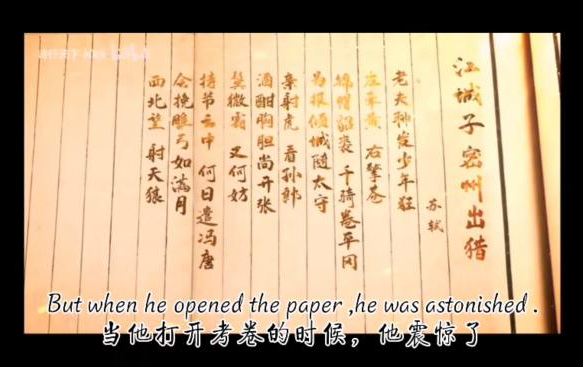 江城子密州出猎
苏轼
老夫聊发少年狂
左牵黄 右擎苍
锦帽貂裘 千骑卷平冈
为报倾城随太守
亲射虎 看孙郎
酒酣胸胆尚开张
鬓微霜 又何妨
持节云中 何日遣冯唐
会挽雕弓如满月
西北望 射天狼
But when he opened the paper ,he was astonished .
当他打开考卷的时候，他震惊了